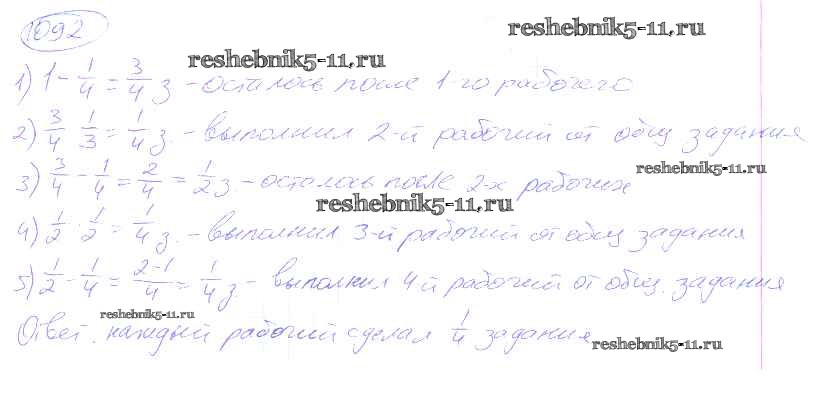 1092
reshebnik5-11.ru
reshebnik5-11.ru
1) 1 - 1/4 = 3/4 з - осталось после 1-го рабочего
2) 3/4 · 1/3 = 1/4 з. - выполнил 2-й рабочий от общ задания
reshebnik5-11.ru
3) 3/4 - 1/4 = 2/4 = 1/2 з - осталось после 2-х рабочих
reshebnik5-11.ru
4) 1/2 · 1/2 = 1/4 з. - выполнил 3-й рабочий от общ задания
5) 1/2 - 1/4 = 2-1/4 = 1/4 з - выполнил 4й рабочий от общ. задания
reshebnik5-11.ru
Ответ. каждый рабочий сделал 1/4 задания
reshebnik5-11.ru